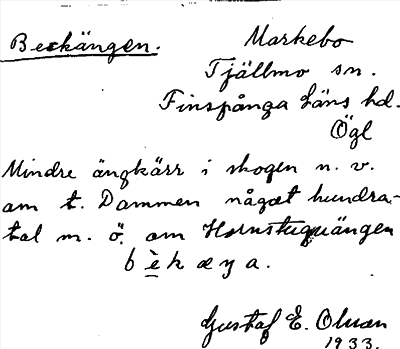 Beckängen.
Markebo
Tjällmo sn.
Finspånga läns hd.
Ögl
Mindre ängkärr i skogen n. v.
om t. Dammen något hundra-
tal m. ö. om
b è k æ ŋ a.
Gustaf E. Olsson
1933.